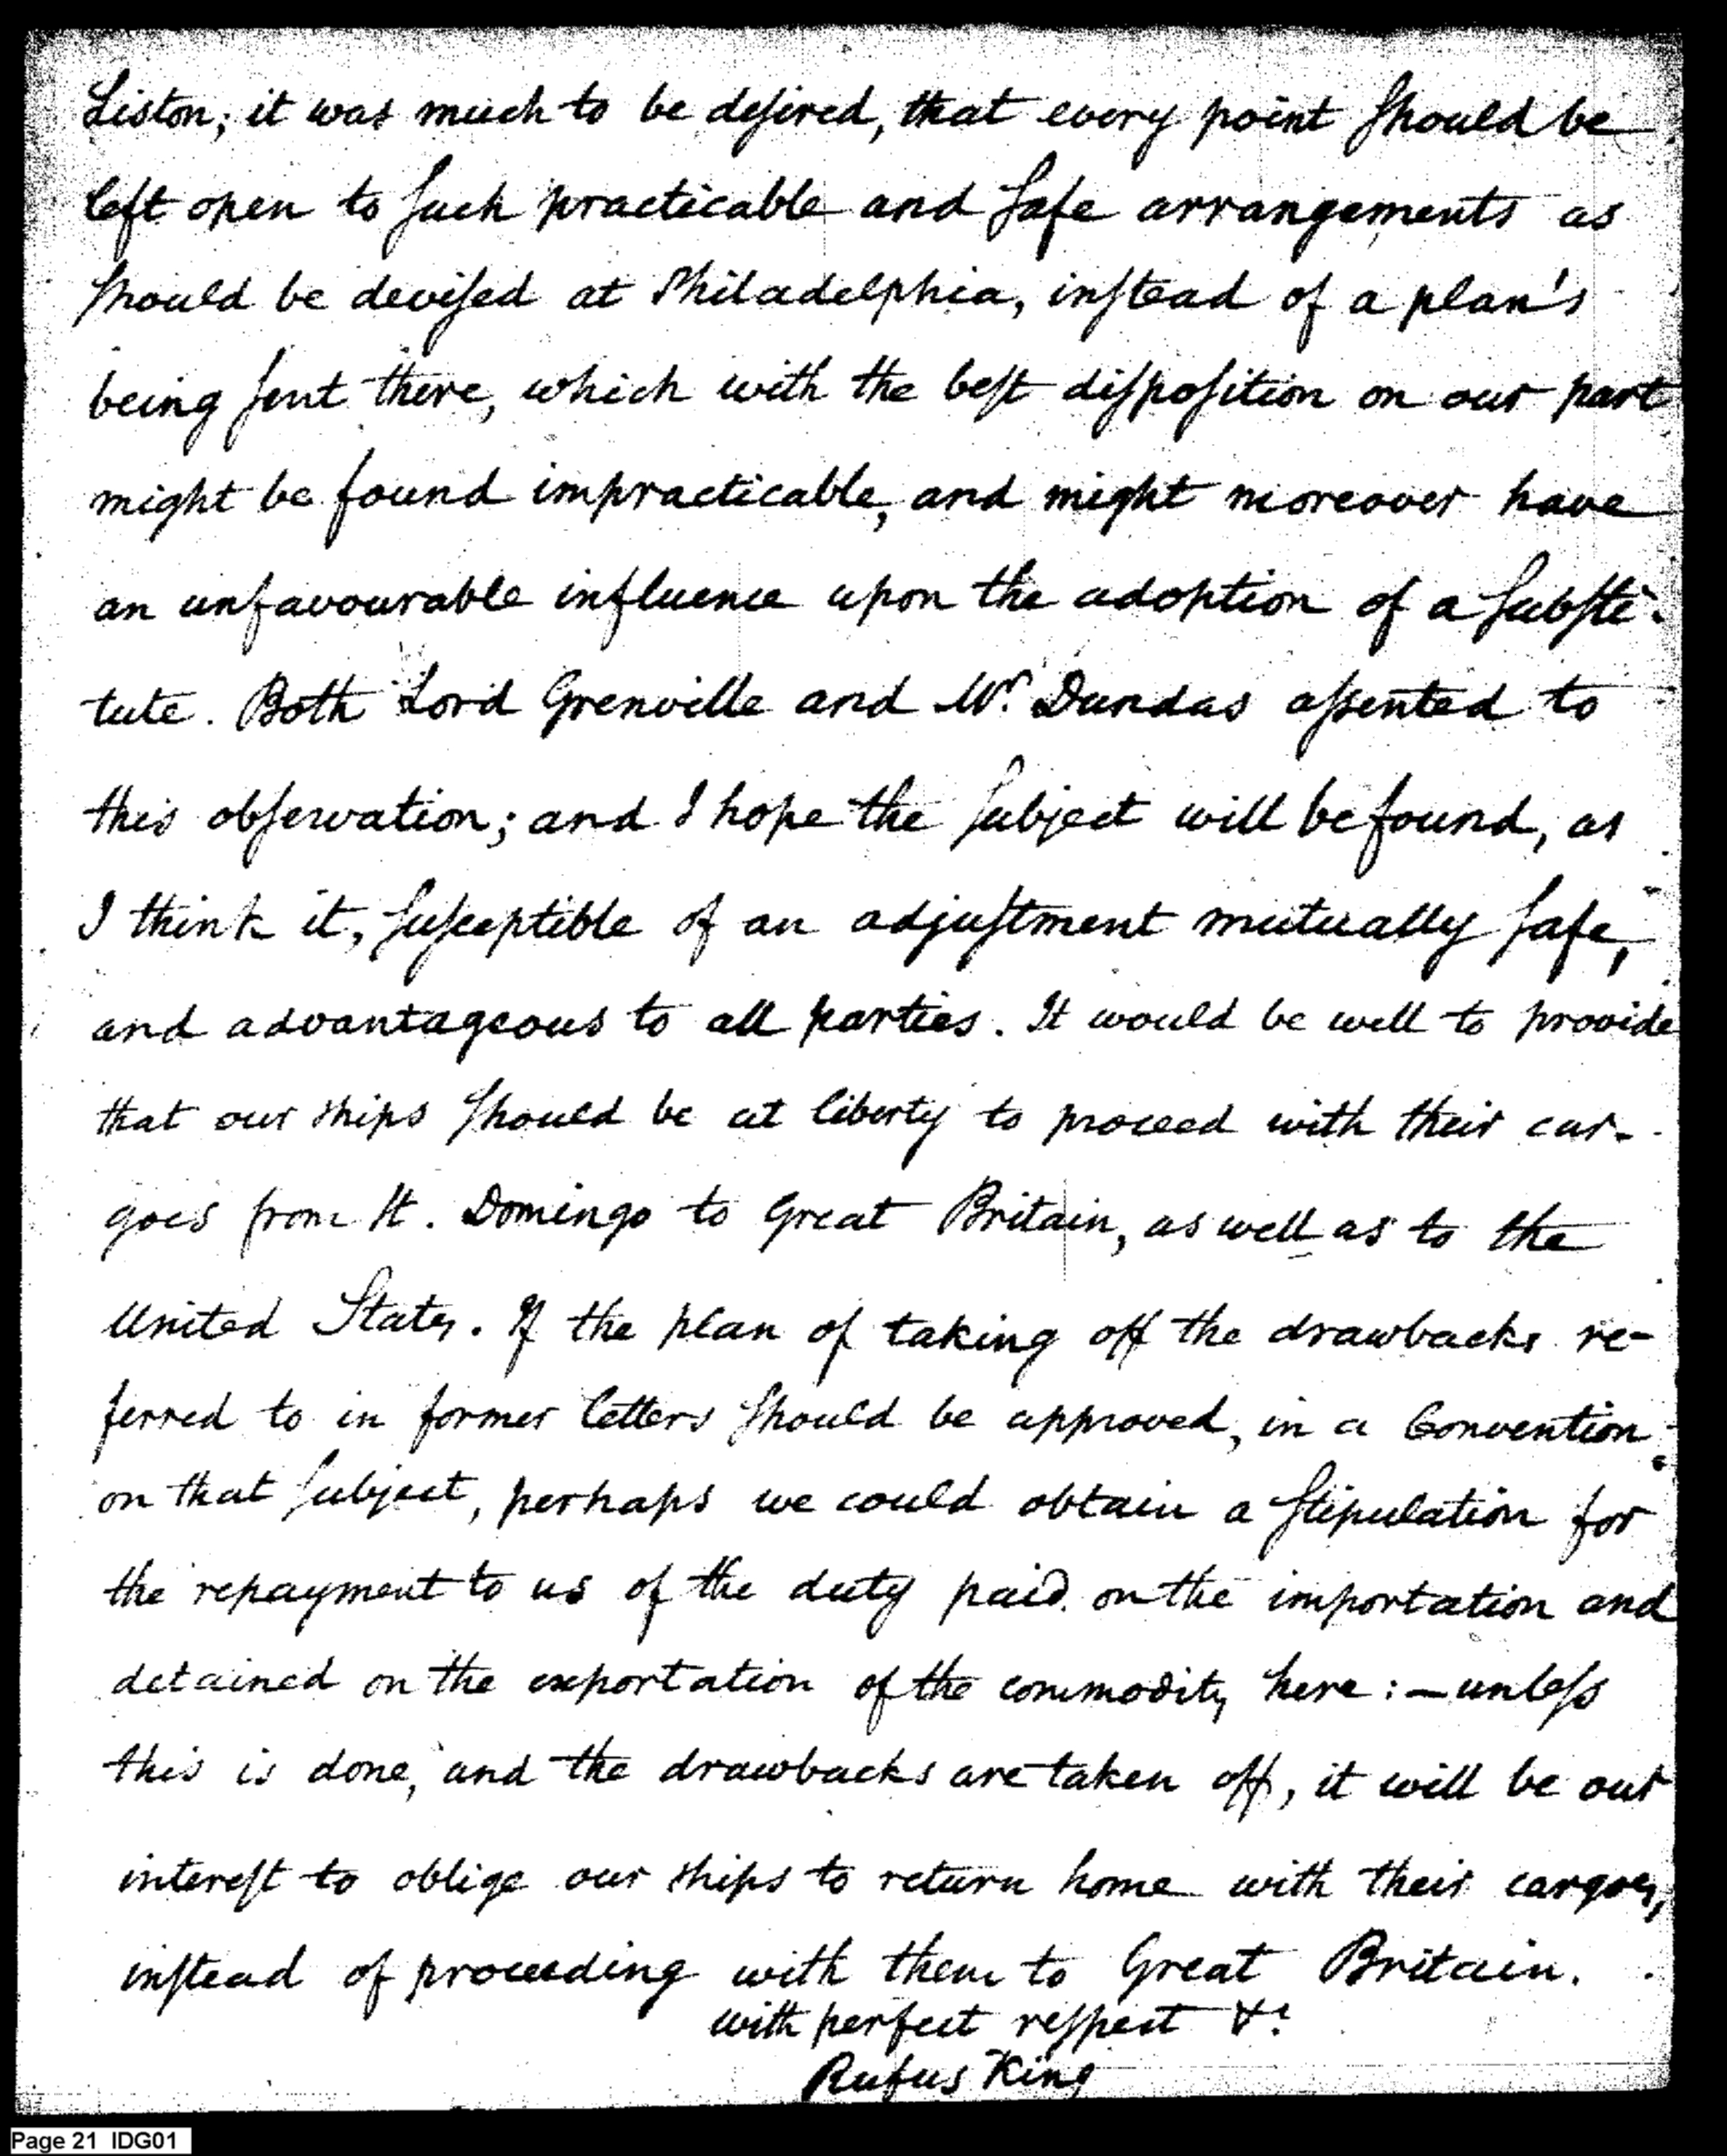 Liston; it was much to be desired, that every point should be
left open to such practicable and safe arrangements as
should be devised at Philadelphia, instead of a plan's
being sent there, which with the best disposition on our part
might be found impracticable, and might moreover have
an unfavourable influence upon the adoption of a substi-
tute. Both Lord Grenville and Mr. Dundas assented to
this observation; and I hope the subject will be found, as
I think it, susceptible of an adjustment mutually safe,
and advantageous to all parties. It would be well to provide
that our ships should be at liberty to proceed with their car-
goes from St. Domingo to Great Britain, as well as to the
United States. If the plan of taking off the drawbacks re-
ferred to in former letters should be approved, in a Convention
on that subject, perhaps we could obtain a stipulation for
the repayment to us of the duty paid on the importation and
detained on the exportation of the commodity here: — unless
this is done, and the drawbacks are taken off, it will be our
interest to oblige our ships to return home with their cargoes,
instead of proceeding with them to Great Britain.
with perfect respect &c
Rufus King
Page 21 IDG01